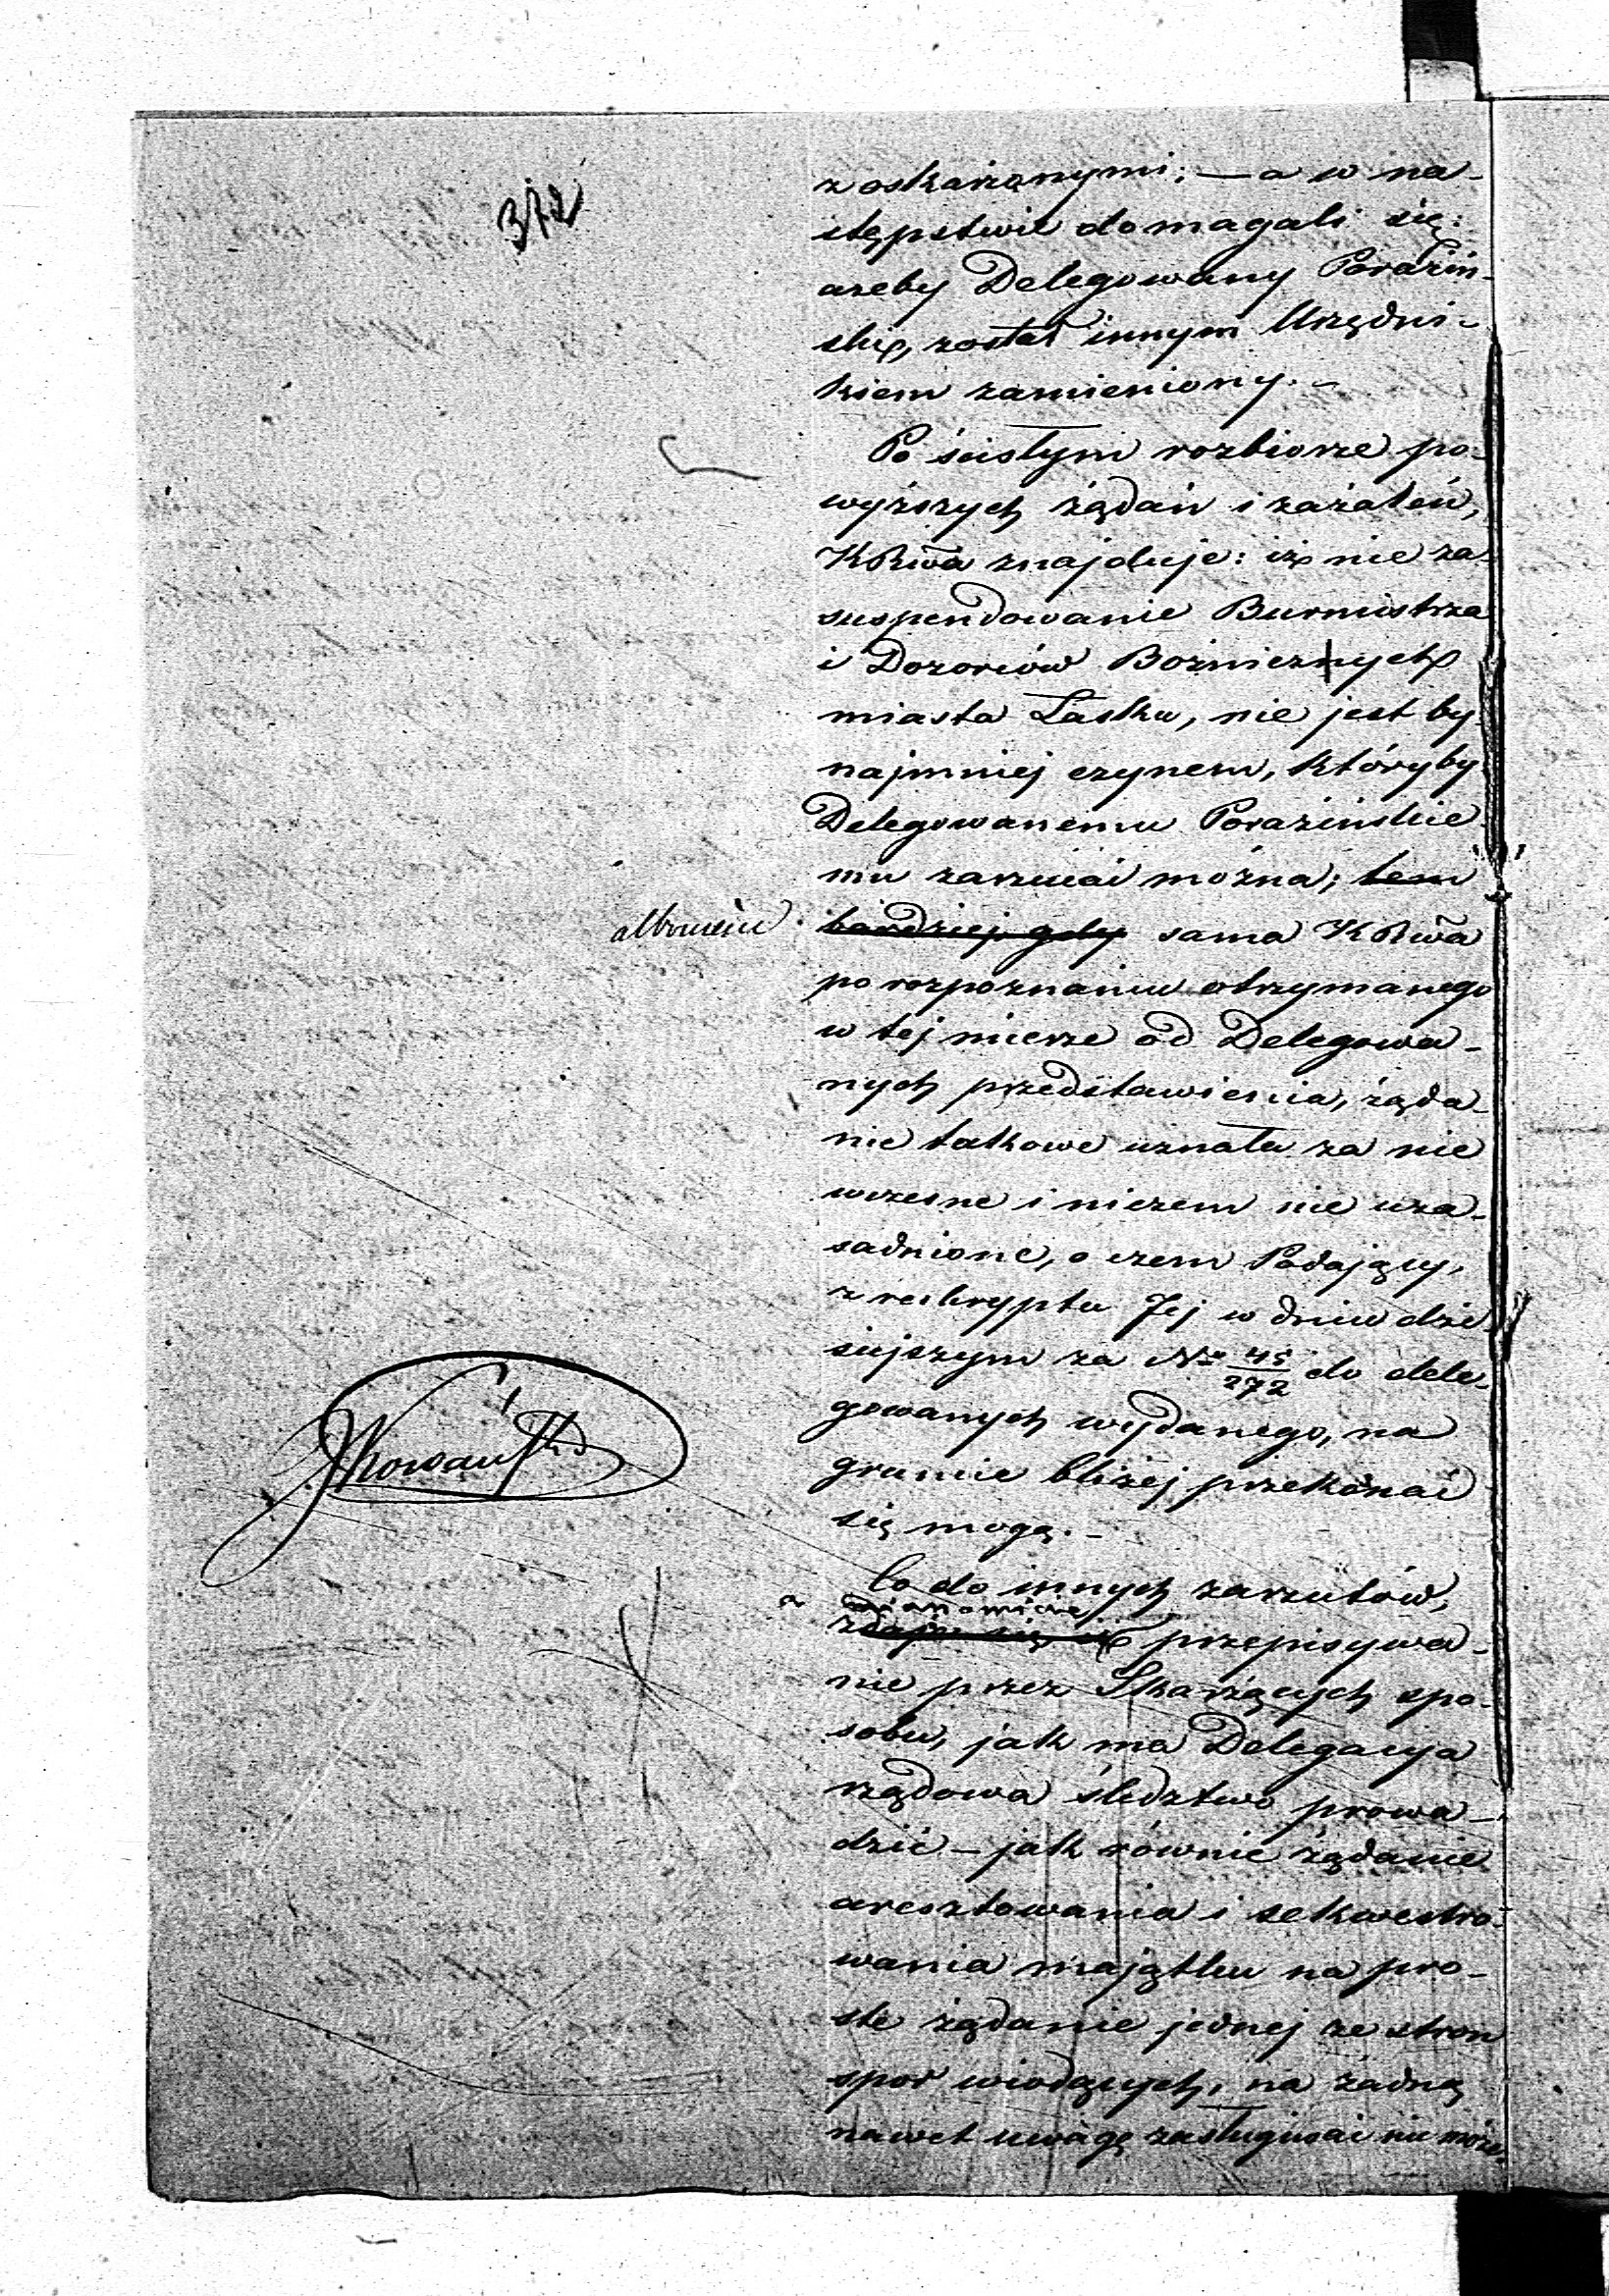 372
z oskarżonymi; — a w na-
stępstwie domagali się:
ażeby Delegowany Poraziń-
ski, został innym Urzędni-
kiem zamieniony. —
Po ścisłym rozbiorze po-
wyższych żądań i zażaleń,
KRwa znajduje: iż nie za-
suspendowanie Burmistrza
i Dozorców Bożnicznych
miasta Łasku, nie jest by-
najmniej czynem, któryby
Delegowanemu Porazińskie-
mu zarzucać można; tem
albowiem bardziej gdy sama KRwa
po rozpoznaniu otrzymanego
w tej mierze od Delegowa-
nych przedstawienia, żąda-
nie takowe uznała za nie
wczesne i niczem nie uza-
sadnione, o czem Podający,
z reskryptu Jej w dniu dzi-
siejszym za Nr 45/272 do dele-
gowanych wydanego, na
gruncie bliżej przekonać
się mogą. —
Co do innych zarzutów,
a mianowicie
zdaje się iż przepisywa-
nie przez Skarżących spo-
sobu, jak ma Delegacya
rządowa śledztwo prowa-
dzić — jak równie żądanie
aresztowania i sekwestro-
wania majątku na pro-
ste żądanie jednej ze stron
spór wiodących, na żadną
nawet uwagę zasługiwać nie może